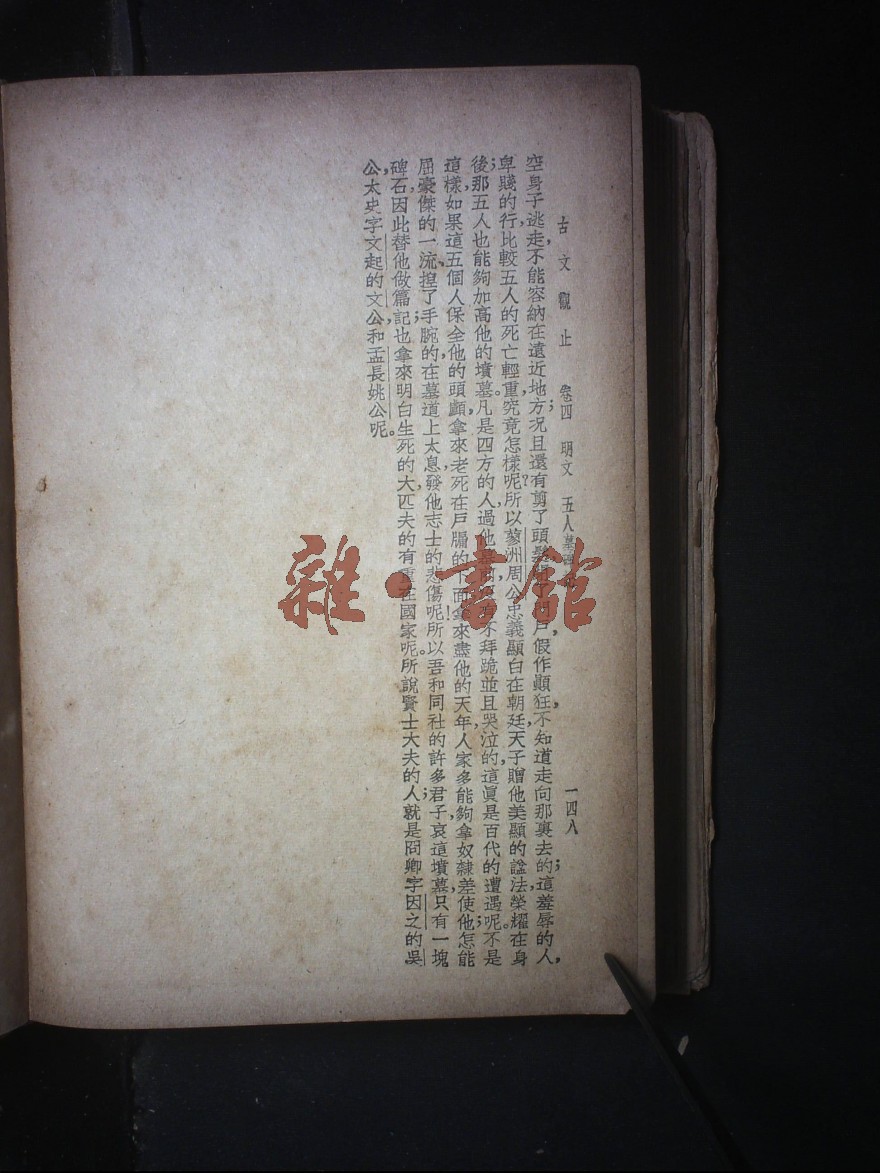 古文觀止 卷四 明文 五人墓 一四八
空身子逃走,不能容納在遠近地方;況且還有剪了頭髮,戶,假作顛狂,不知道走向那裏去的;這羞辱的人,
卑賤的行,比較五人的死亡,輕重究竟怎樣呢?所以蓼洲周公,忠義顯白在朝廷,天子贈他美顯的諡法,榮耀在身
後;那五人也能夠加高他的墳墓。凡是四方的人,過他不拜跪並且哭泣的,這眞是百代的遭遇呢;不是
這樣,如果這五個人保全他的頭顱,拿來老死在戶牖的下面,拿來盡他的天年,人家多能夠拿奴隸差使他,怎能
屈豪傑的一流,揑了手腕的,在墓道上太息,發他志士的悲傷呢!所以吾和同社的許多君子,哀這墳墓,只有一塊
碑石,因此替他做篇記;也拿來明白生死的大,匹夫的有重在國家呢。所說賢士大夫的人;就是冏卿字因之的吳
公,太史字文起的文公,和孟長姚公呢。
雜·書館